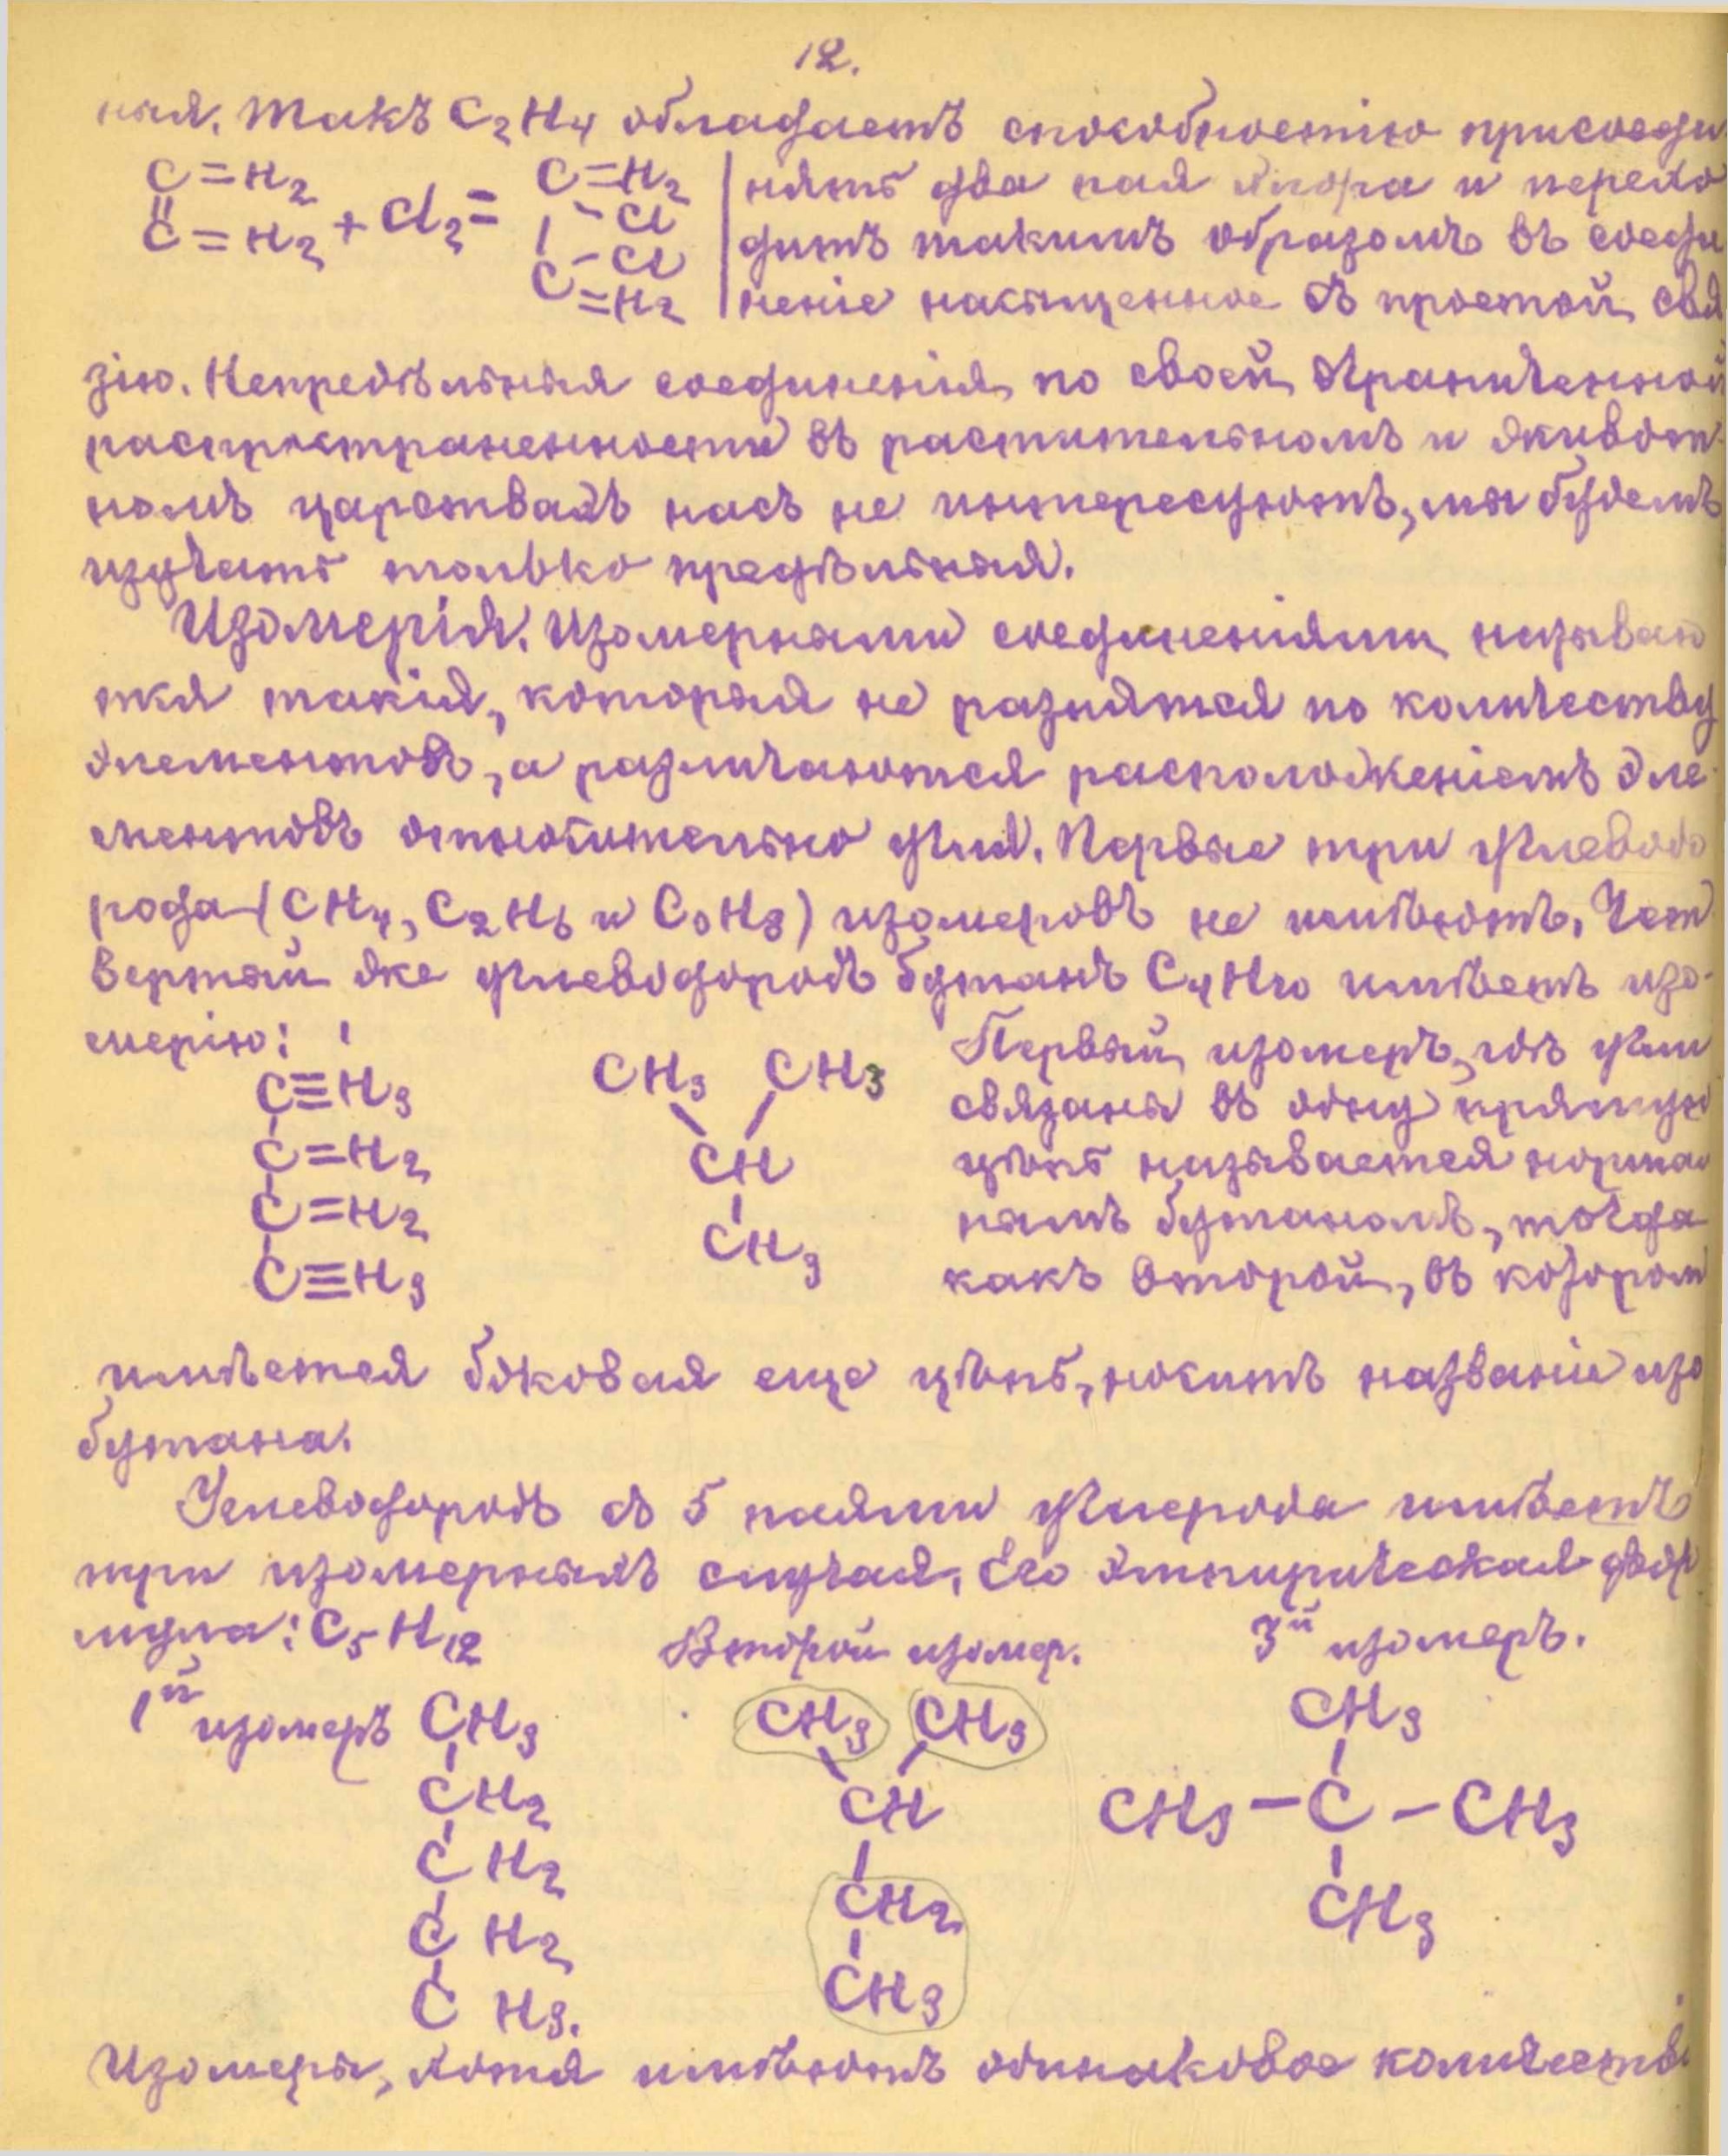 12.
ныя. Такъ C2H4 обладаетъ способностію присоеди
C=H2
C=H2 + Cl2 =
C=H2
- Cl
- Cl
C=H2
нять два пая хлора и перехо
дитъ такимъ образомъ въ соеди
неніе насыщенное съ простой свя
зію. Непредѣльныя соединенія, по своей ограниченной
распространенности въ растительномъ и живот-
номъ царствахъ насъ не интересуютъ, мы будемъ
изучать только предѣльныя.
Изомерія. Изомерными соединеніями называю
тся такія, которыя не разнятся по количеству
элементовъ, а различаются расположеніемъ эле-
ментовъ относительно угля. Первые три углеводо
рода (CH4, C2H6 и C3H8) изомеровъ не имѣютъ. Чет
вертый же углеводородъ бутанъ C4H10 имѣетъ изо-
мерію:
C≡H3
C=H2
C=H2
C≡H3
CH3 CH3
CH
CH3
Первый изомеръ, гдѣ угли
связаны въ одну прямую
цѣпь называется нормаль
нымъ бутаномъ, тогда
какъ второй, въ котором
имѣется боковая еще цѣпь, носитъ названіе изо
бутана.
Углеводородъ съ 5 паями углерода имѣетъ
три изомерныхъ случая. Его эмпирическая фор
мула: C5H12
Второй изомер.
3й изомеръ.
1й изомеръ
CH3
CH2
CH2
CH2
CH3.
CH3 CH3
CH
CH2
CH3
CH3
CH3 - C - CH3
CH3
Изомеры, хотя имѣютъ одинаковое количество